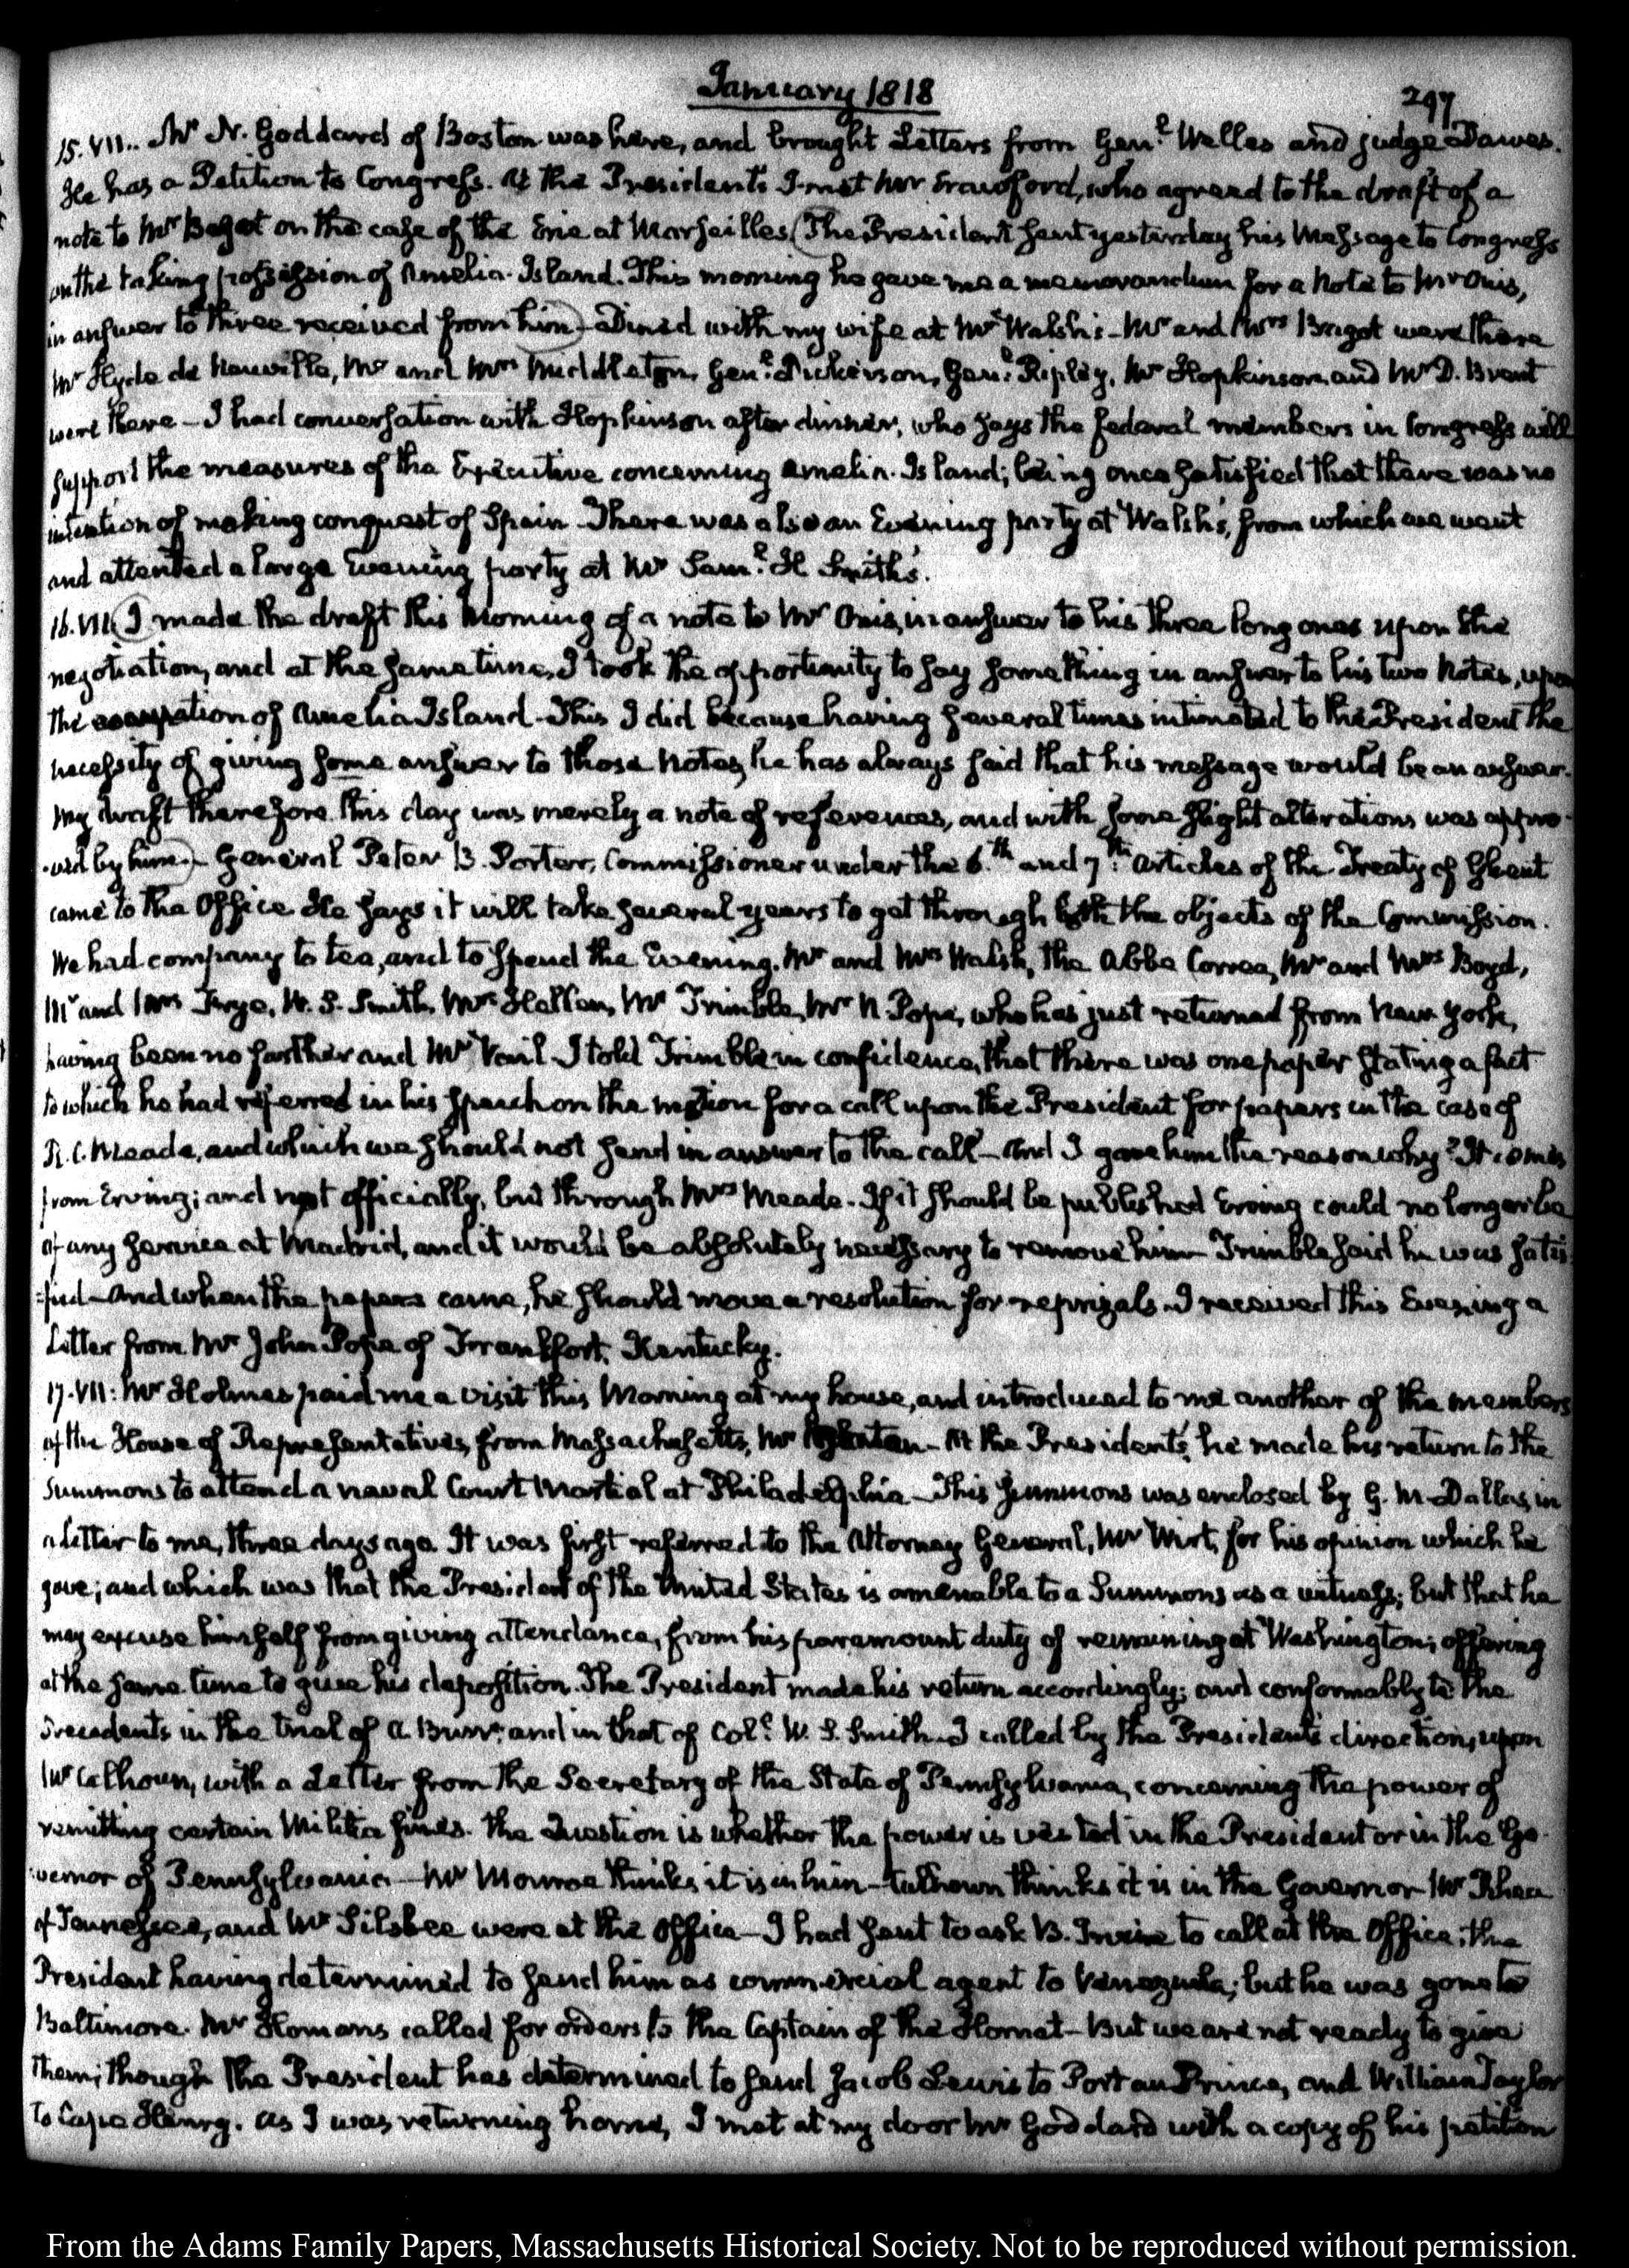 January 1818
297
15. VII.. Mr. N. Goddard of Boston was here, and brought Letters from Genl. Welles and judge Dawes.
He has a Petition to Congress. At the President's I met Mr Crawford, who agreed to the draft of a
note to Mr Bagot on the case of the Erie at Marseilles (The President sent yesterday his Message to Congress
on the taking possession of Amelia-Island. This morning he gave me a memorandum for a Note to Mr Onis,
in answer to three received from him) Dined with my wife at Mr Walsh's - Mr and Mrs Bagot were there
Mr Hyde de Neuville, Mr and Mrs Middleton, Genl. Dickerson, Genl. Ripley, Mr Hopkinson and Mr D. Brent
were there - I had conversation with Hopkinson after dinner, who says the federal members in Congress will
support the measures of the Executive concerning Amelia-Island; being once satisfied that there was no
intention of making conquest of Spain - There was also an Evening party at Walsh's, from which we went
and attended a large Evening party at Mr Saml. H Smith's.
16. VII. (I made the draft this Morning of a note to Mr Onis, in answer to his three long ones upon the
negotiation, and at the same time, I took the opportunity to say something in answer to his two Notes, upon
the occupation of Amelia Island - This I did because having several times intimated to the President the
necessity of giving some answer to those Notes, he has always said that his message would be an answer.
My draft therefore this day was merely a note of references, and with some slight alterations was appro-
-ved by him.) - General Peter B. Porter, Commissioner under the 6.th and 7.th articles of the Treaty of Ghent
came to the Office He says it will take several years to get through both the objects of the Commission.
We had company to tea, and to spend the Evening. Mr and Mrs Walsh, the Abbe Correa, Mr and Mrs Boyd,
Mr and Mrs Frye, W. S. Smith, Mrs Hellen, Mr Trimble, Mr N Pope, who has just returned from New York,
having been no farther and Mr Vail - I told Trimble in confidence, that there was one paper stating a fact
to which he had referred in his speech on the motion for a call upon the President for papers in the case of
R. C. Meade, and which we should not send in answer to the call - And I gave him the reason why? It comes
from Erving; and not officially, but through Mrs Meade - If it should be published Erving could no longer be
of any service at Madrid, and it would be absolutely necessary to remove him Trimble said he was satis-
=fied - And when the papers came, he should move a resolution for reprizals - I received this Evening a
Letter from Mr John Pope of Frankfort, Kentucky.
17. VII: Mr Holmes paid me a visit this Morning at my house, and introduced to me another of the members
of the House of Representatives, from Massachusetts, Mr - At the President's, he made his return to the
Summons to attend a naval Court Martial at Philadelphia - This Summons was enclosed by G. M. Dallas, in
a letter to me, three days ago It was first referred to the Attorney General, Mr Wirt, for his opinion which he
gave; and which was that the President of the United States is amenable to a Summons as a witness; but that he
may excuse himself from giving attendance, from his paramount duty of remaining at Washington; offering
at the same time to give his deposition. The President made his return accordingly; and conformably to the
Precedents in the trial of A. Burr, and in that of Coll. W. S. Smith - I called by the President's direction, upon
Mr Calhoun, with a Letter from the Secretary of the State of Pennsylvania, concerning the power of
remitting certain Militia fines. The Question is whether the power is vested in the President or in the Go-
-vernor of Pennsylvania - Mr Monroe thinks it is in him - Calhoun thinks it is in the Governor Mr Rhea
of Tennessee, and Mr Silsbee were at the Office - I had sent to ask B. Irvine to call at the Office; the
President having determined to send him as commercial agent to Venezuela; but he was gone to
Baltimore. Mr Homans called for orders to the Captain of the Hornet - But we are not ready to give
them; though the President has determined to send Jacob Lewis to Port au Prince, and William Taylor
to Cape Henry. As I was returning home, I met at my door Mr Goddard with a copy of his petition
From the Adams Family Papers, Massachusetts Historical Society. Not to be reproduced without permission.